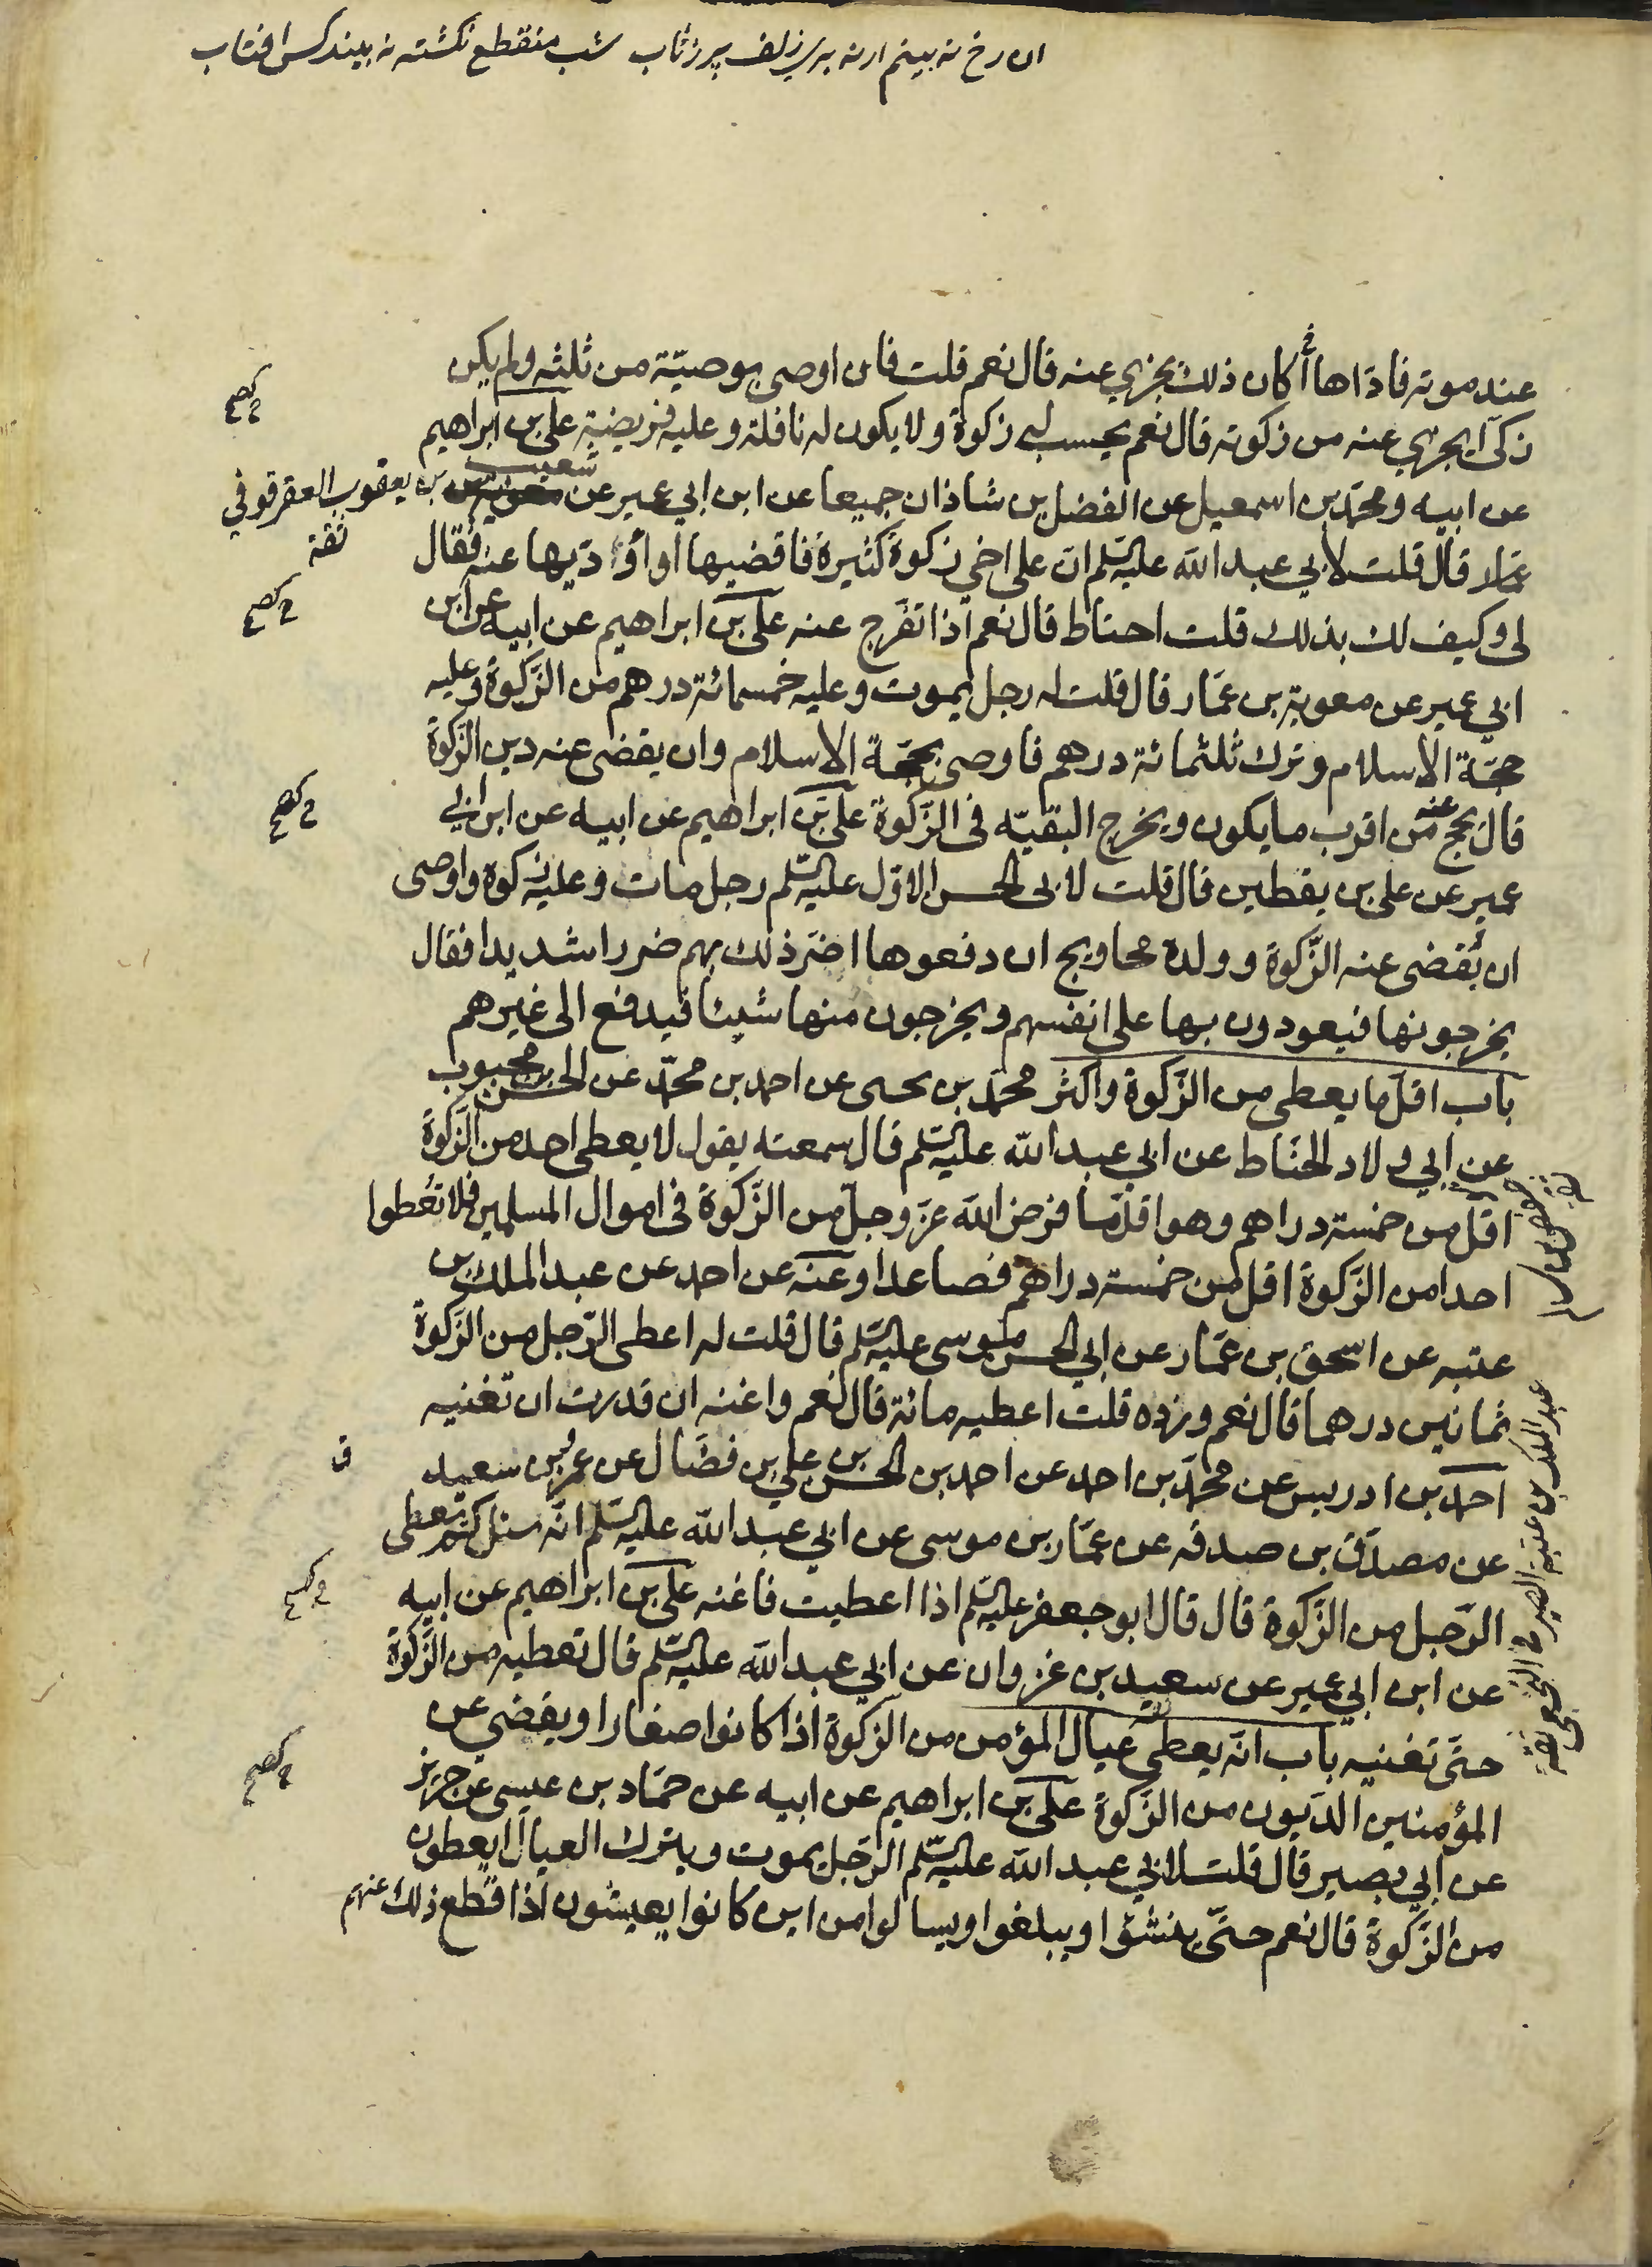 ان رخ نه بینم ار نه بری زلف پر ز تاب شب منقطع نکشته نه بیند کس افتاب
عند موته فاداها أكان ذلك يجزي عنه قال نعم قلت فان اوصى بوصيّة من ثلثه ولم يكن
زكّى أيجزي عنه من زكوته قال نعم يحسب له زكوة ولا يكون له نافلة وعليه فريضة علي بن ابراهيم
عن ابيه ومحمد بن اسمعيل عن الفضل بن شاذان جميعا عن ابن ابي عمير عن شعيب
بن يعقوب العقرقوفي
ثقة
عمار قال قلت لأبي عبد الله عليه السّلم ان على اخي زكوة كثيرة فاقضيها او أؤديها عنه فقال
لي وكيف لك بذلك قلت احتاط قال نعم اذا تفرج عنه علي بن ابراهيم عن ابيه عن ابن
ابي عمير عن معوية بن عمّار قال قلت له رجل يموت وعليه خمسمائة درهم من الزّكوة وعليه
حجّة الاسلام وترك ثلثمائة درهم فاوصى بحجّة الاسلام وان يقضى عنه دين الزّكوة
قال يحج عنه من اقرب ما يكون ويخرج البقيّه في الزّكوة علي بن ابراهيم عن ابيه عن ابن ابي
عمير عن علي بن يقطين قال قلت لابي الحسن الاوّل عليه السّلم رجل مات وعليه زكوة واوصى
ان تُقضى عنه الزّكوة وولده محاويج ان دفعوها اضرّ ذلك بهم ضررا شديدا فقال
يخرجونها فيعودون بها على انفسهم ويخرجون منها شيئا فيدفع الى غيرهم
باب اقلّ ما يعطى من الزّكوة واكثر محمّد بن يحيى عن احمد بن محمّد عن الحسن بن محبوب
عن ابي ولاد الحنّاط عن ابي عبد الله عليه السّلم قال سمعته يقول لا يعطى احد من الزّكوة
اقل من خمسة دراهم وهو اقل ما فرض الله عزّ وجلّ من الزّكوة في اموال المسلمين فلا تُعطوا
احدا من الزّكوة اقل من خمسة دراهم فصاعدا وعنه عن احمد عن عبد الملك بن
عتبه عن اسحق بن عمّار عن ابي الحسن موسى عليه السّلم قال قلت له اعطى الرّجل من الزّكوة
ثمانين درهما قال نعم وزده قلت اعطيه مائة قال نعم واغنه ان قدرت ان تغنيه
احمد بن ادريس عن محمّد بن احمد عن احمد بن الحسن بن علي بن فضّال عن عمرو بن سعيد
عن مصدّق بن صدقه عن عمّار بن موسى عن ابي عبد الله عليه السّلم انّه سئل كم يعطى
الرّجل من الزّكوة قال قال ابو جعفر عليه السّلم اذا اعطيت فاغنه علي بن ابراهيم عن ابيه
عن ابن ابي عمير عن سعيد بن غزوان عن ابي عبد الله عليه السّلم قال تعطيه من الزّكوة
حتّى تغنيه باب انّه يعطى عيال المؤمن من الزكوة اذا كانوا صغارا ويقضى عن
المؤمنين الديون من الزّكوة علي بن ابراهيم عن ابيه عن حمّاد بن عيسى عن حريز
عن ابي بصير قال قلت لابي عبد الله عليه السّلم الرّجل يموت ويترك العيال أيعطون
من الزّكوة قال نعم حتّى ينشؤا ويبلغوا ويسالوا من اين كانوا يعيشون اذا قطع ذلك عنهم
عبد الملك بن عتبة الصيرفي النخعي ثقة